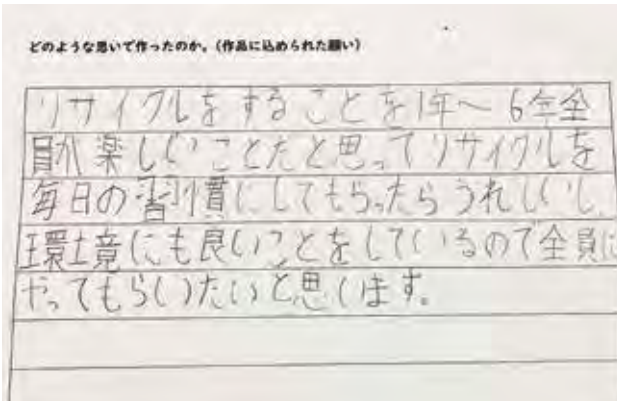 どのような思いで作ったのか。(作品に込められた願い)
リサイクルをすることを1年〜6年全
員が楽しいことだと思ってリサイクルを
毎日の習慣にしてもらったらうれしいし、
環境にも良いことをしているので全員に
やってもらいたいと思います。